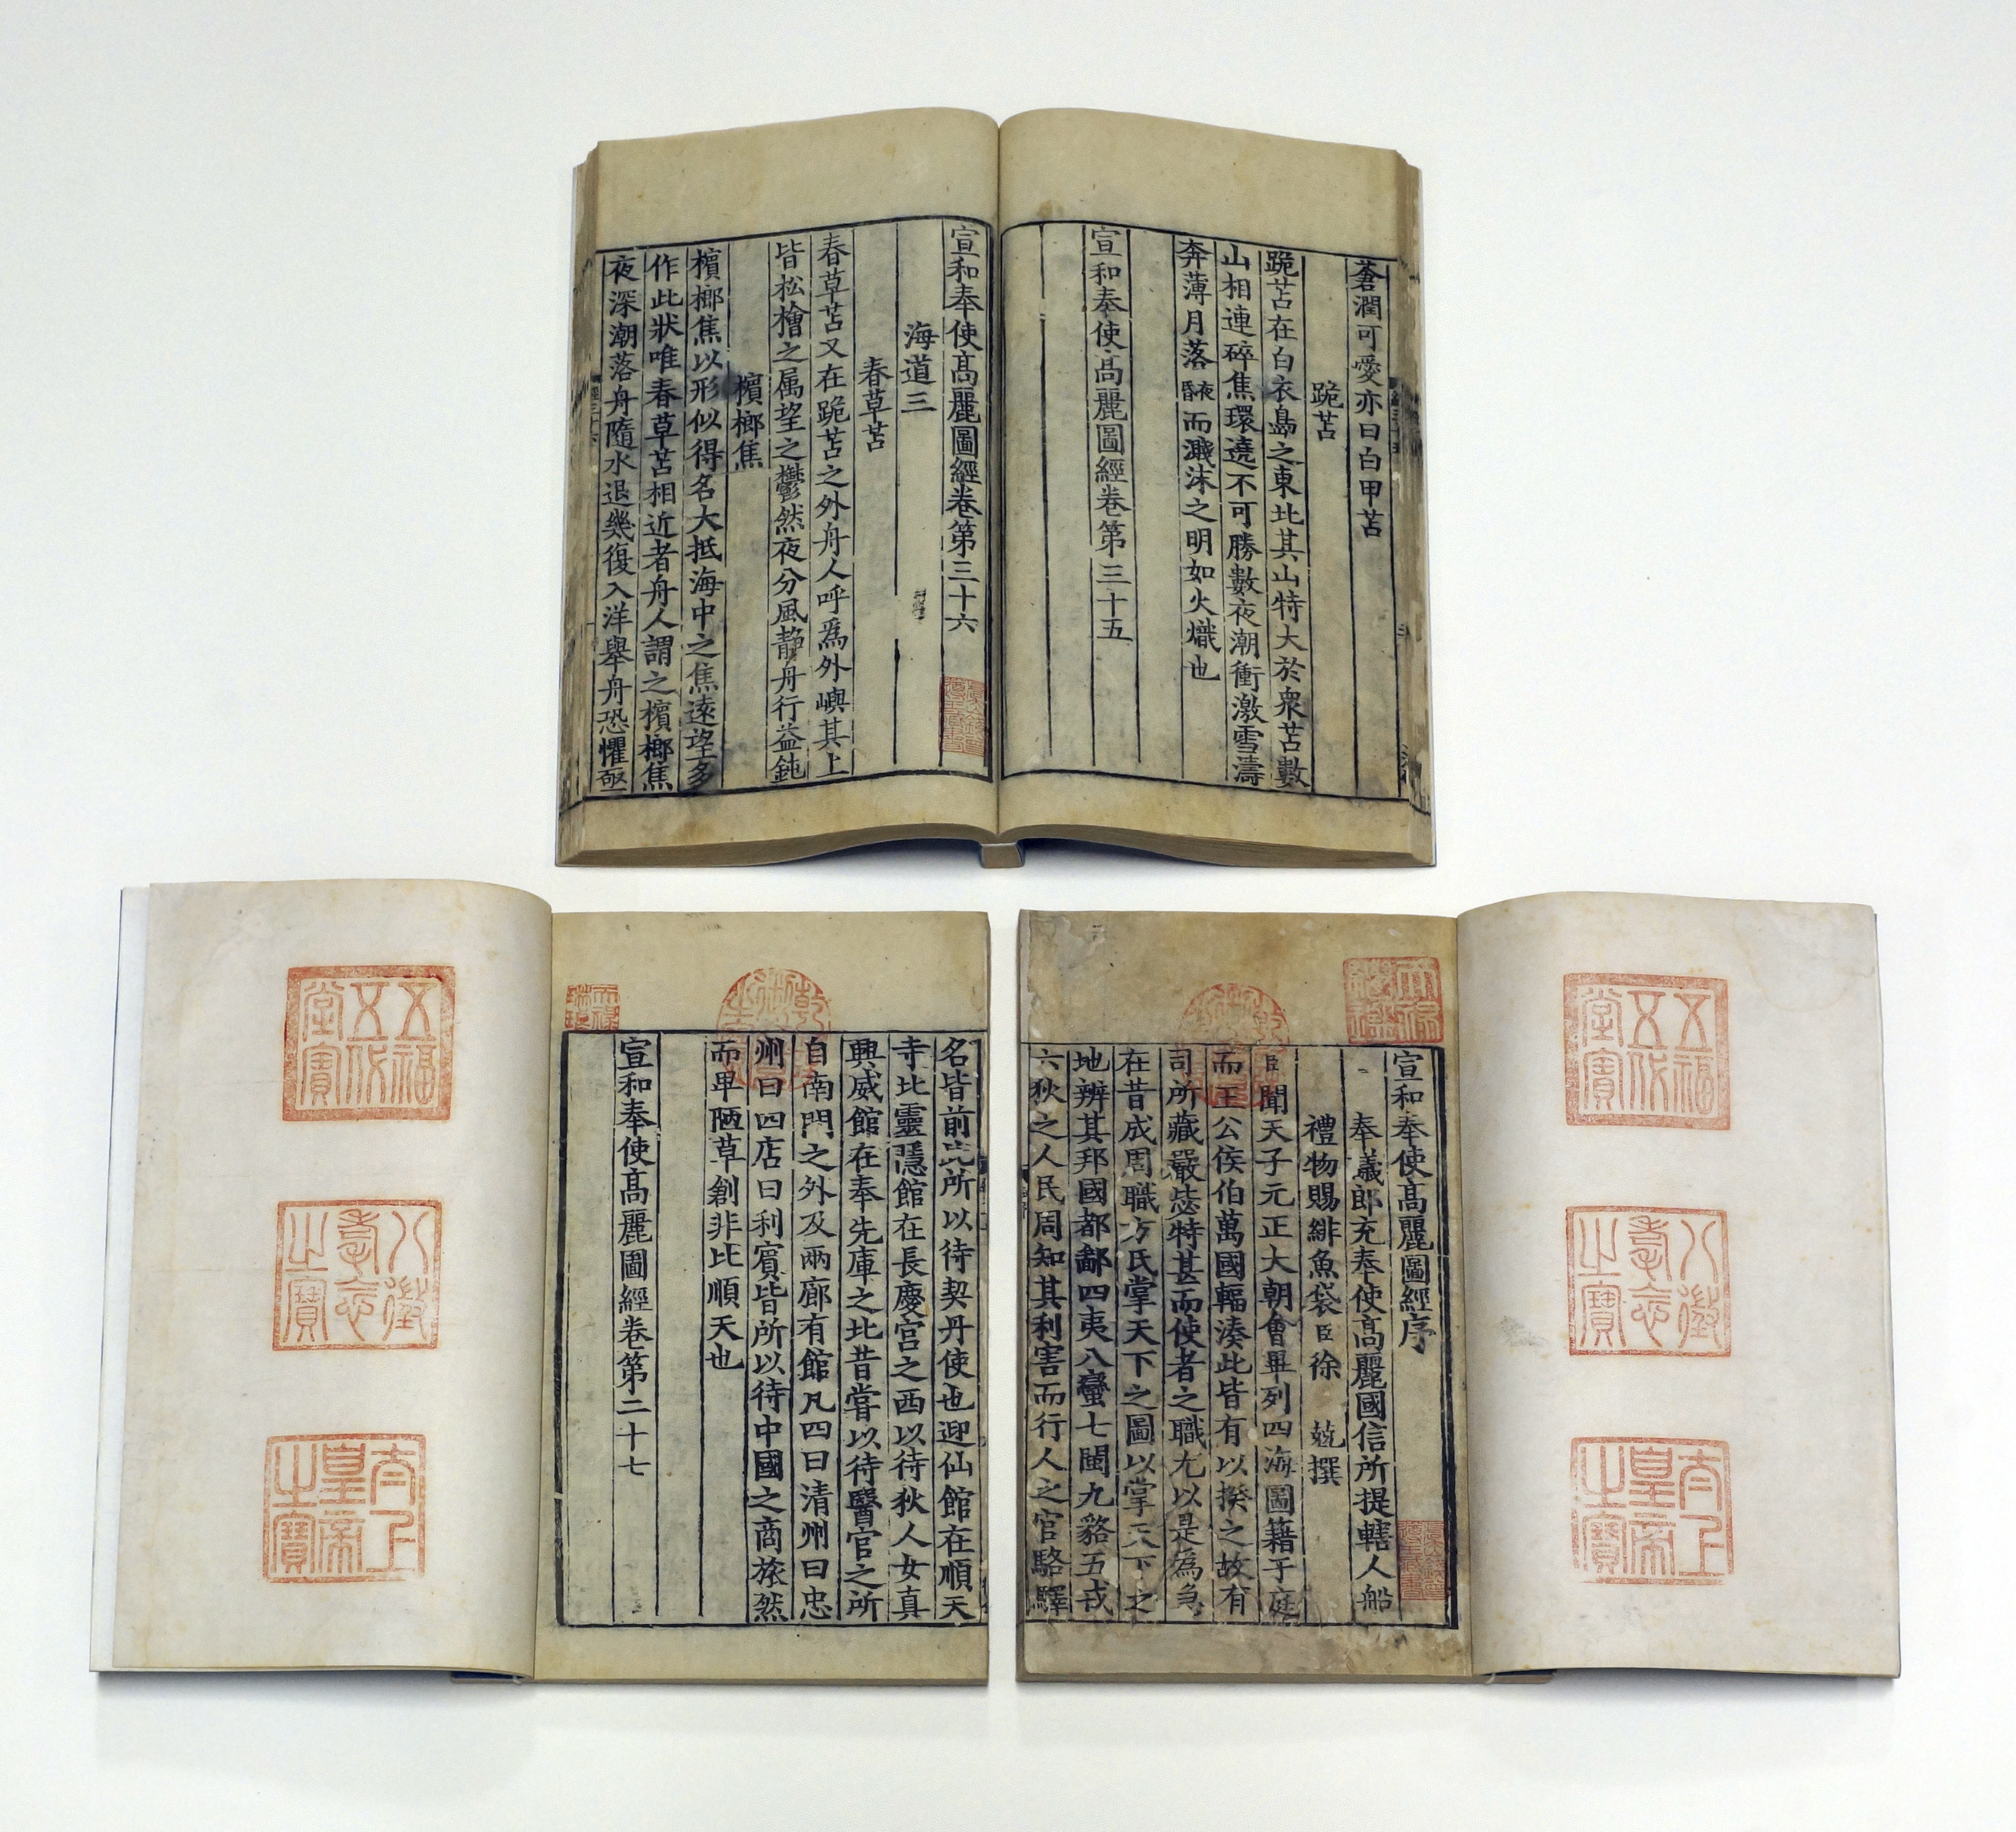 蒼潤可愛亦曰白甲苫
跪苫
跪苫在白衣島之東北其山特大於衆苫數
山相連碎焦環遶不可勝數夜潮衝激雪濤
奔薄月落夜昏而濺沫之明如火熾也
宣和奉使高麗圖經卷第三十五
宣和奉使高麗圖經卷第三十六
海道三
春草苫
春草苫又在跪苫之外舟人呼爲外嶼其上
皆松檜之属望之欝然夜分風静舟行益鈍
檳榔焦
檳榔焦以形似得名大抵海中之焦遠望多
作此狀唯春草苫相近者舟人謂之檳榔焦
夜深潮落舟隨水退幾復入洋舉舟恐懼亟
五福五代堂寶
八徵耄念之寶
太上皇帝之寶
天祿繼鑑
乾隆御覽之寶
宣和奉使高麗圖經序
奉議郎充奉使高麗國信所提轄人船
禮物賜緋魚袋臣徐兢撰
臣聞天子元正大朝會畢列四海圖籍于庭
而王公侯伯萬國輻湊此皆有以揆之故有
司所藏嚴毖特甚而使者之職尤以是為急
在昔成周職方氏掌天下之圖以掌天下之
地辨其邦國都鄙四夷八蠻七閩九貉五戎
六狄之人民周知其利害而行人之官駱驛
名皆前此所以待契丹使也迎仙館在順天
寺北靈隱館在長慶宮之西以待狄人女真
興威館在奉先庫之北昔嘗以待醫官之所
自南門之外及兩廊有館凡四曰清州曰忠
州曰四店曰利賓皆所以待中國之商旅然
而卑陋草創非比順天也
宣和奉使高麗圖經卷第二十七
乾隆御覽之寶
天祿琳琅
五福五代堂寶
八徵耄念之寶
太上皇帝之寶